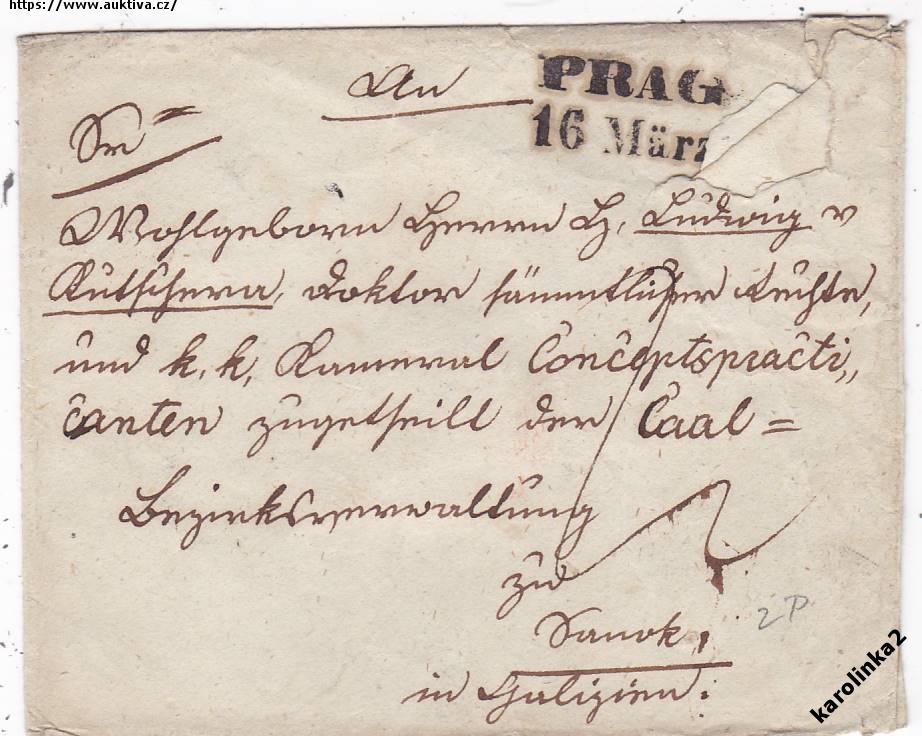 https://www.auktiva.cz/
An
PRAG
16 März
Sr
Wohlgeborn Herrn H, Ludwig v
Kutschera, Doktor sämmtlicher Rechte,
und k. k. Kameral Conceptspracti„
canten zugetheilt der Caal =
Bezirksverwaltung
zu
Sanok,
2P
in Galizien.
karolinka2